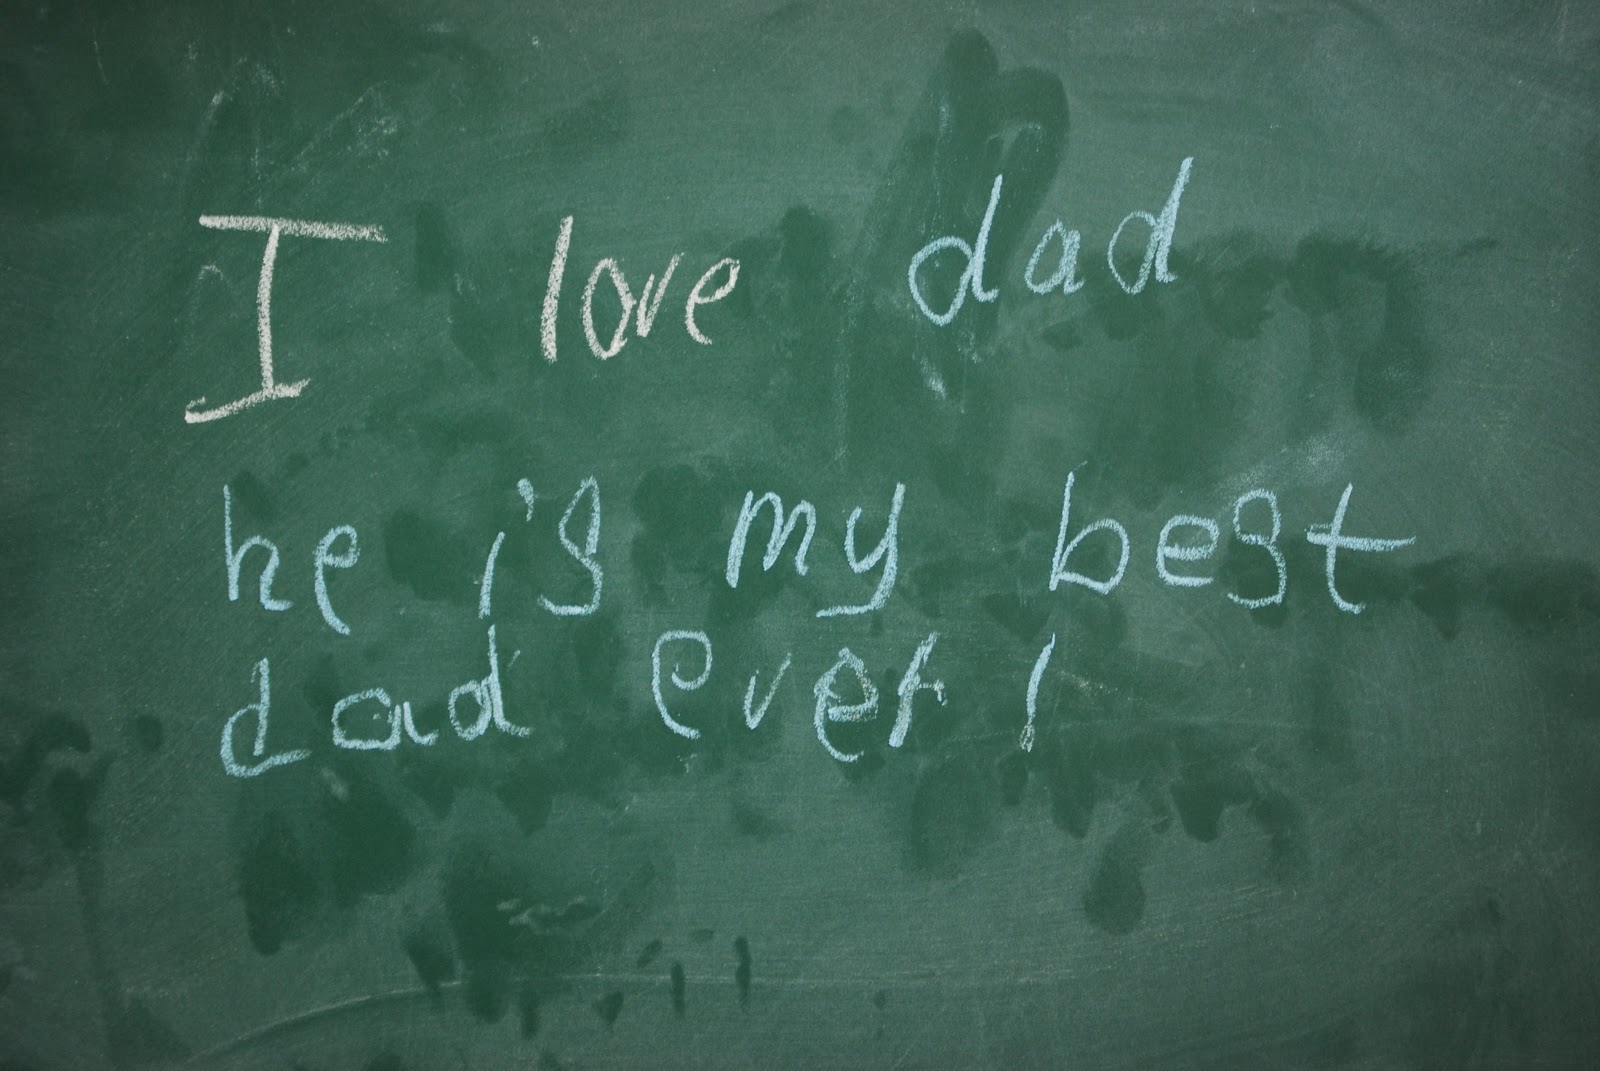 I love dad
he is my best
dad ever!